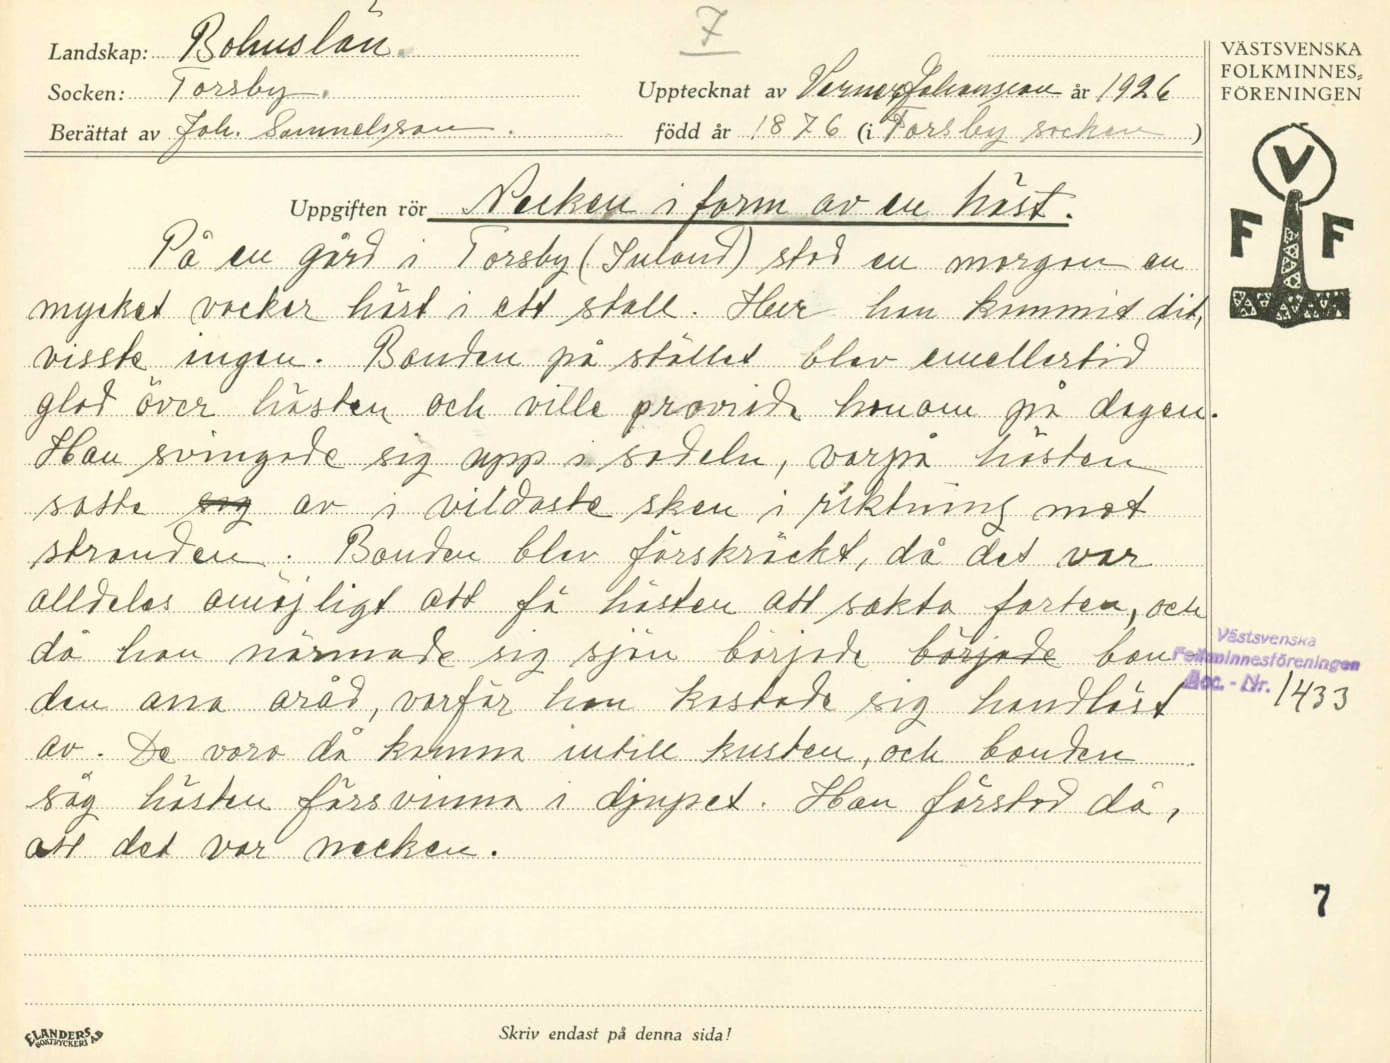 7
Landskap: Bohuslän.
Socken: Torsby.
Upptecknat av Verner Johansson år 1926
Berättat av Joh. Samuelsson.
född år 1876 (i Torsby socken)
VÄSTSVENSKA
FOLKMINNES-
FÖRENINGEN
V
F F
Uppgiften rör Necken i form av en häst.
På en gård i Torsby (Inland) stod en morgon en
mycket vacker häst i ett stall. Hur han kommit dit,
visste ingen. Bonden på stället blev emellertid
glad över hästen och ville provrida honom på dagen.
Han svingade sig upp i sadeln, varpå hästen
satte sig av i vildaste sken i riktning mot
stranden. Bonden blev förskräckt, då det var
alldeles omöjligt att få hästen att sakta farten, och
då han närmade sig sjön började började bon
den ana oråd, varför han kastade sig handlöst
av. De voro då komna intill kusten, och bonden
såg hästen försvinna i djupet. Han förstod då,
att det var necken.
Västsvenska
Folkminnesföreningen
Acc. - Nr. 1433
7
ELANDERS
BOKTRYCKERI AB
Skriv endast på denna sida!